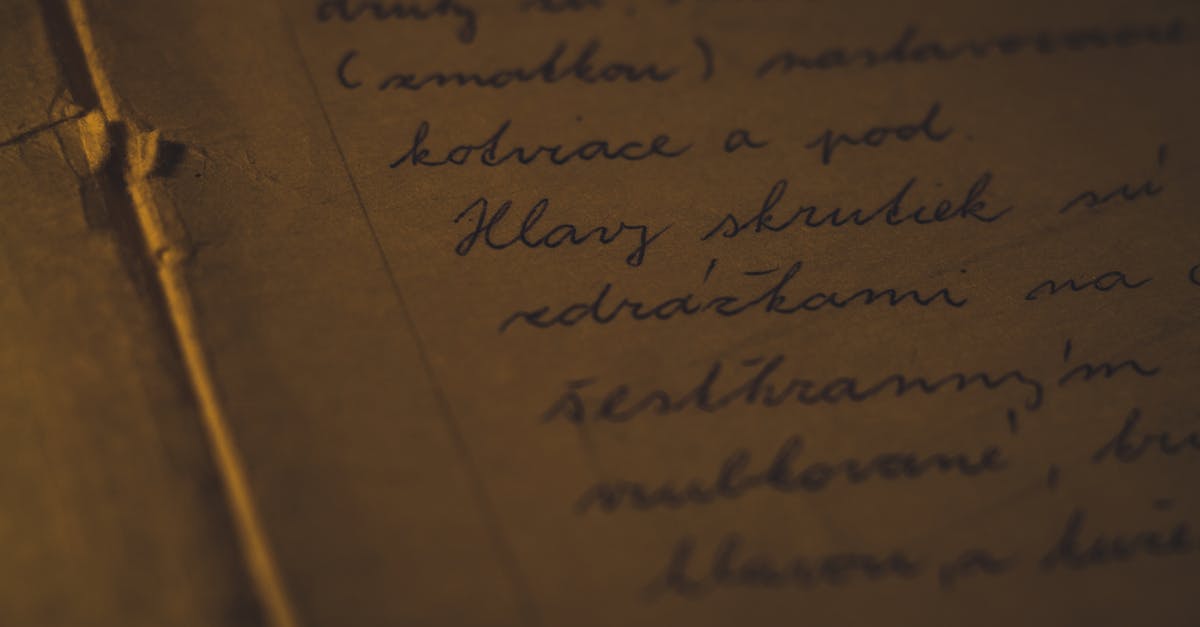 druhy
(zmatkou) nastavovacie
kotviace a pod.
Hlavy skrutiek sú
zdrážkami na
šesťhranným
vrubkované,
hlavou, s